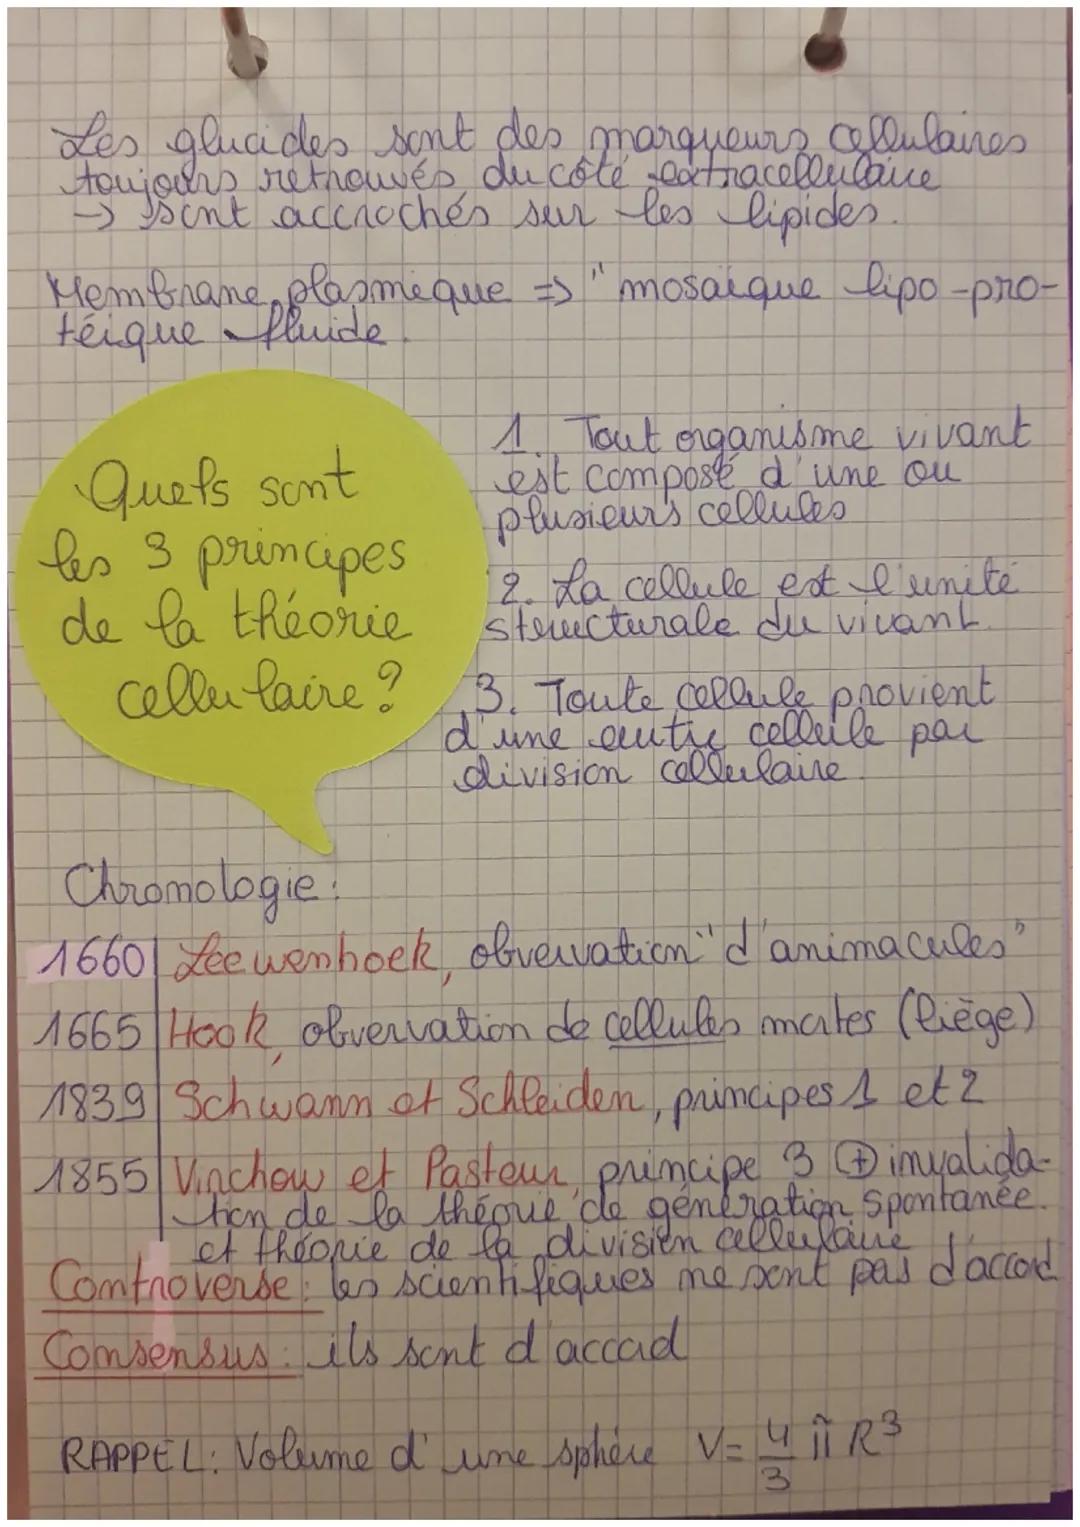 Les glucides sont des marqueurs cellulaires
toujours retrouvés du côté extracellulaire
-> sont accrochés sur les lipides.
Membrane plasmique => "mosaïque lipo-pro-
téique fluide.
Quels sont
les 3 principes
de la théorie
cellulaire ?
1. Tout organisme vivant
est composé d'une ou
plusieurs cellules
2. La cellule est l'unité
structurale du vivant.
3. Toute cellule provient
d'une autre cellule par
division cellulaire.
Chronologie :
1660 Leewenhoek, observation "d'animacules"
1665 Hook, observation de cellules mortes (liège)
1839 Schwann et Schleiden, principes 1 et 2
1855 Virchow et Pasteur, principe 3 ⊕ invalida-
tion de la théorie de génération spontanée.
et théorie de la division cellulaire
Controverse : les scientifiques ne sont pas d'accord
Consensus : ils sont d'accord
RAPPEL : Volume d'une sphère V = 4/3 π R³